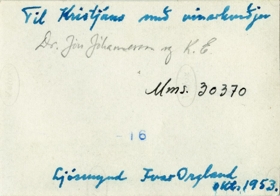 Til Kristjáns með vinarkveðju
Dr. Jón Jóhannesson og K. E.
Mms. 30370
- 16
Ljósmynd Ivar Orgland
okt. 1953.